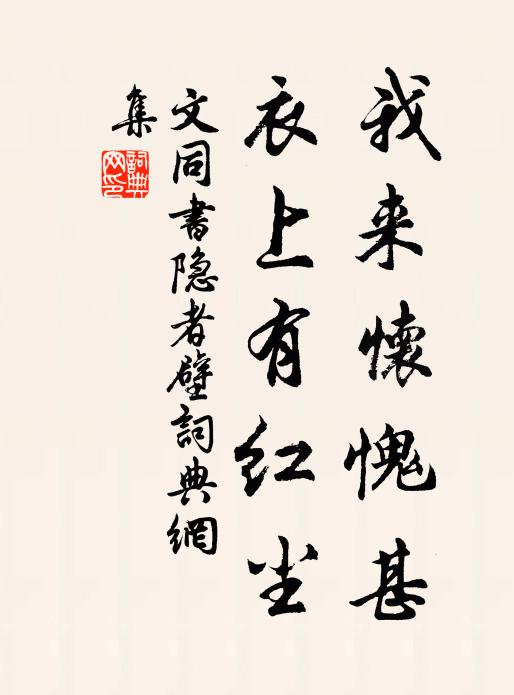 我来懷愧甚
衣上有红尘
文同書隐者壁詞典網
集
詞典
网印